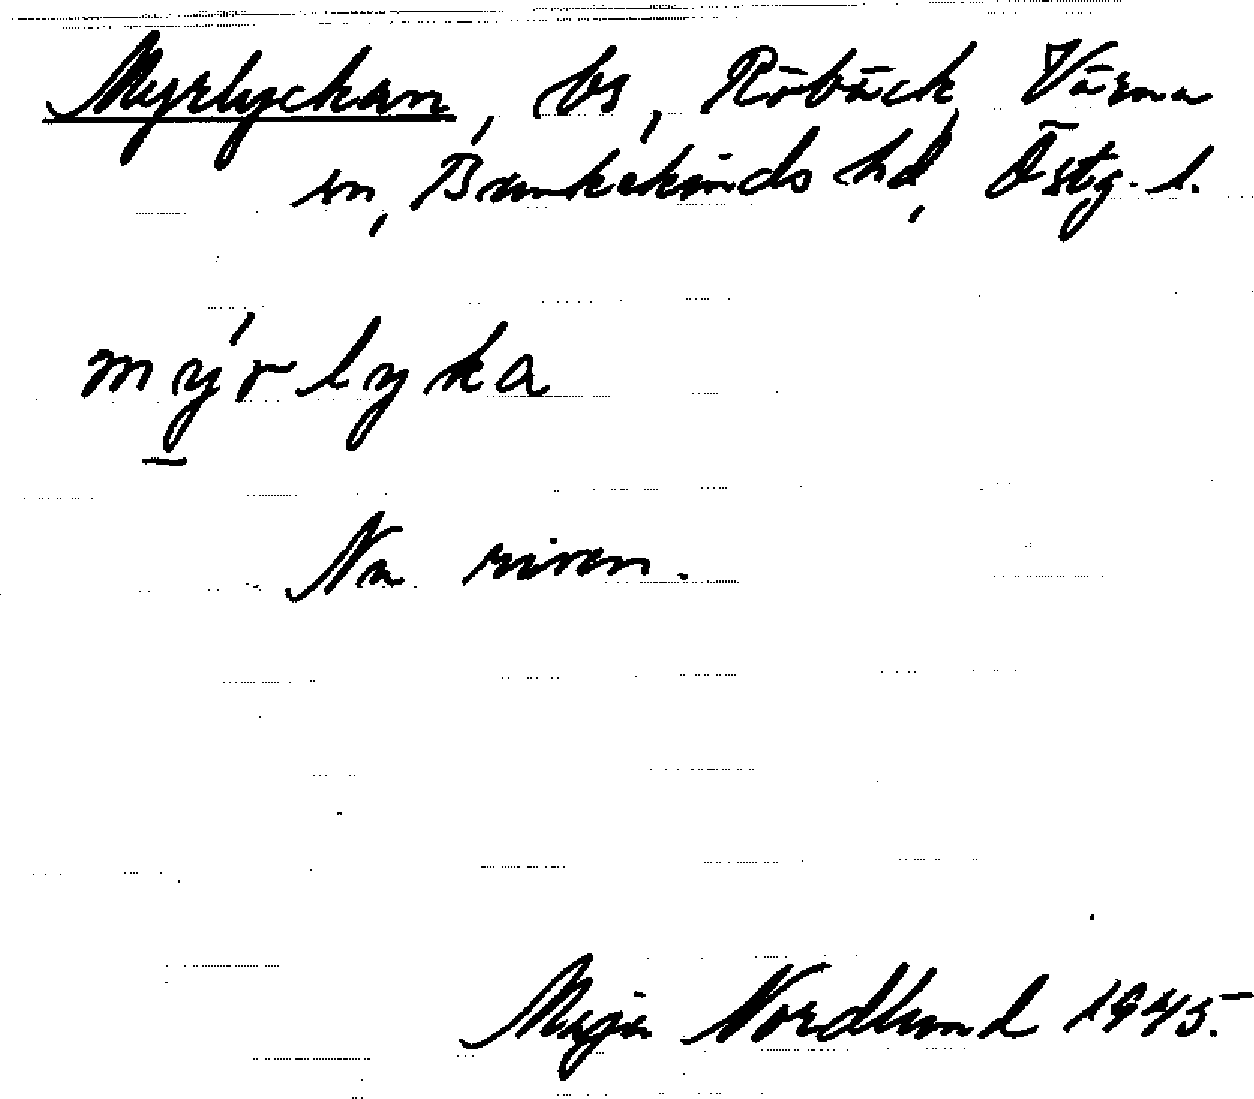 Myrlyckan, bs, Röbäck, Vårna
sn, Bankekinds hd, Östg. l.
mýrlyka
Nu riven.
Maja Nordlund 1945.